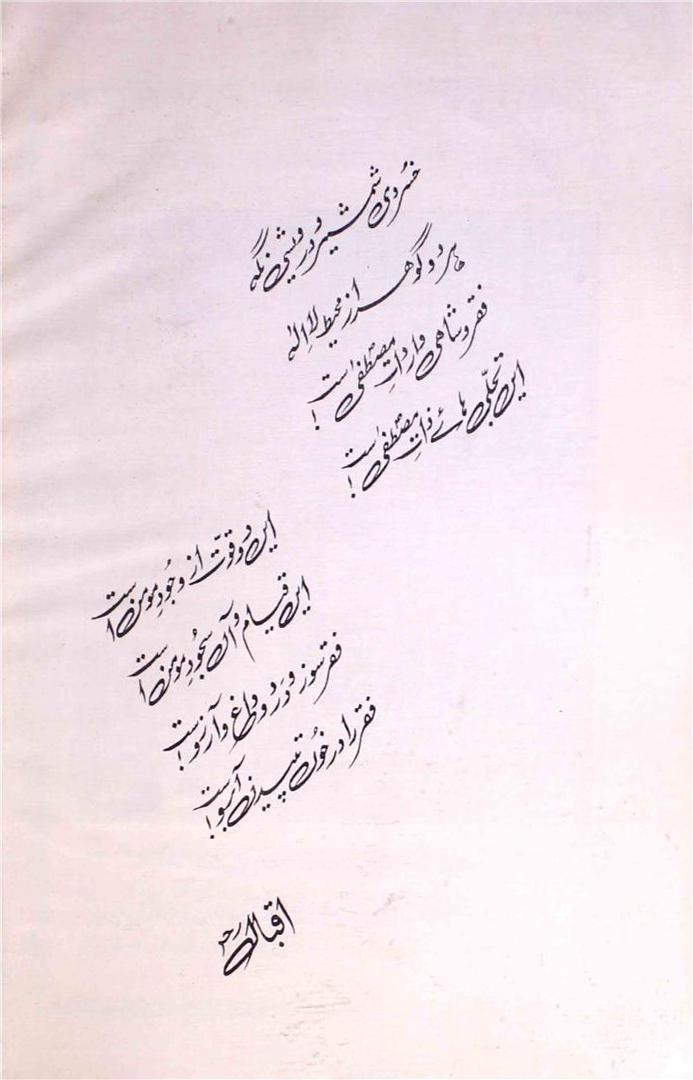 خسروی شمشیر و درویشی نگہ
ہر دو گوھر از محیط لا الٰہ
فقر و شاھی وارداتِ مصطفیٰ است !
این تجلّی ہائے ذاتِ مصطفیٰ است !
این دو قوّت از وجودِ مومن است
این قیام و آن سجُودِ مومن است
فقر سوز و درد و داغ و آرزوست !
فقر را در خُون تپیدن آبروست !
اقبال رح